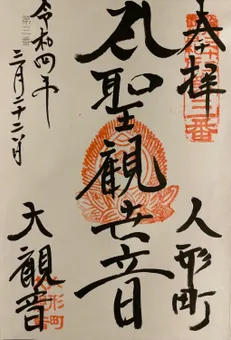 奉拝
人形町
聖観世音
大観音
令和四年
三月二十二日
第三番